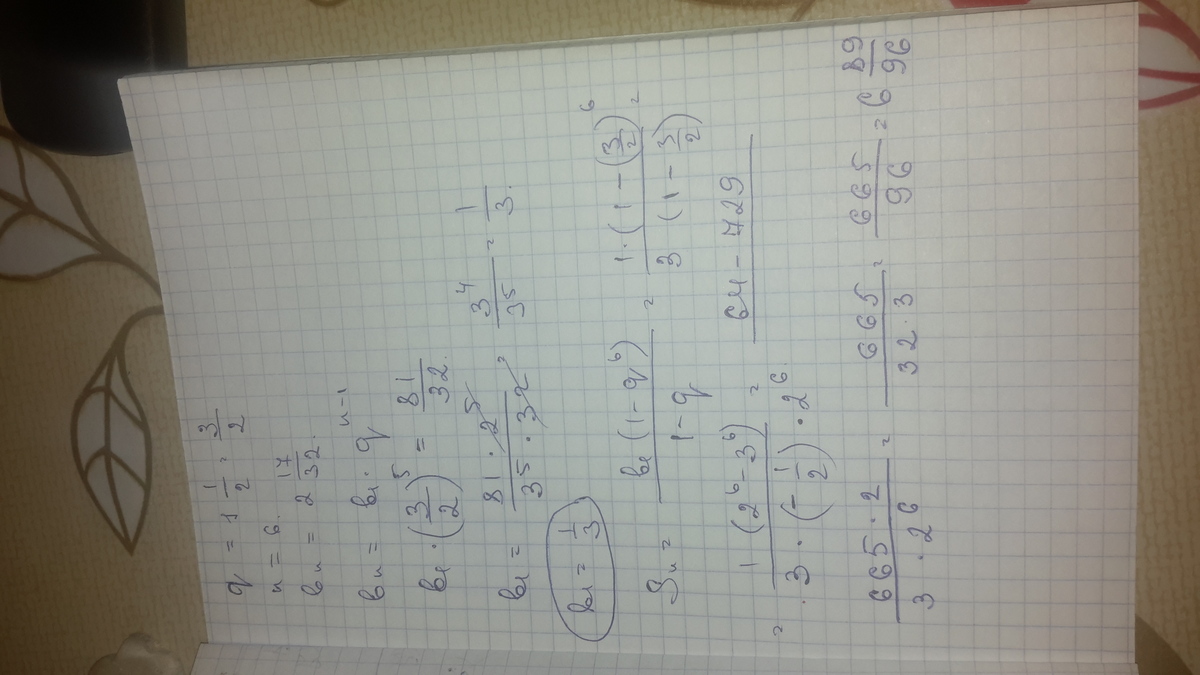 q = 1 1/2 = 3/2
n = 6.
bn = 2 17/32.
bn = b1 · q^(n-1)
b1 · (3/2)^5 = 81/32.
b1 = (81 · 2^5)/(3^5 · 32) = 3^4/3^5 = 1/3.
b1 = 1/3
Sn = b1(1-q^6)/(1-q) = 1·(1-(3/2)^6)/(3(1-3/2)) =
= 1(2^6-3^6)/(3·(-1/2)·2^6) = 64-729
(665·2)/(3·2^6) = 665/(32·3) = 665/96 = 6 89/96